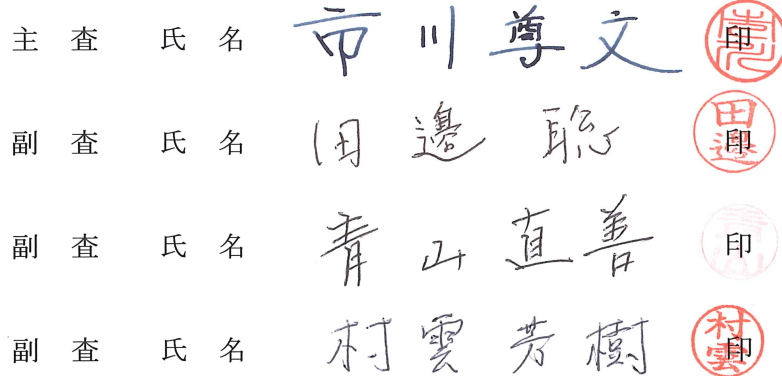 主 査 氏 名 市 川 尊 文 印
副 査 氏 名 田 邉 聡 印 田邉
副 査 氏 名 青 山 直 善 印 青山
副 査 氏 名 村 雲 芳 樹 印 村雲